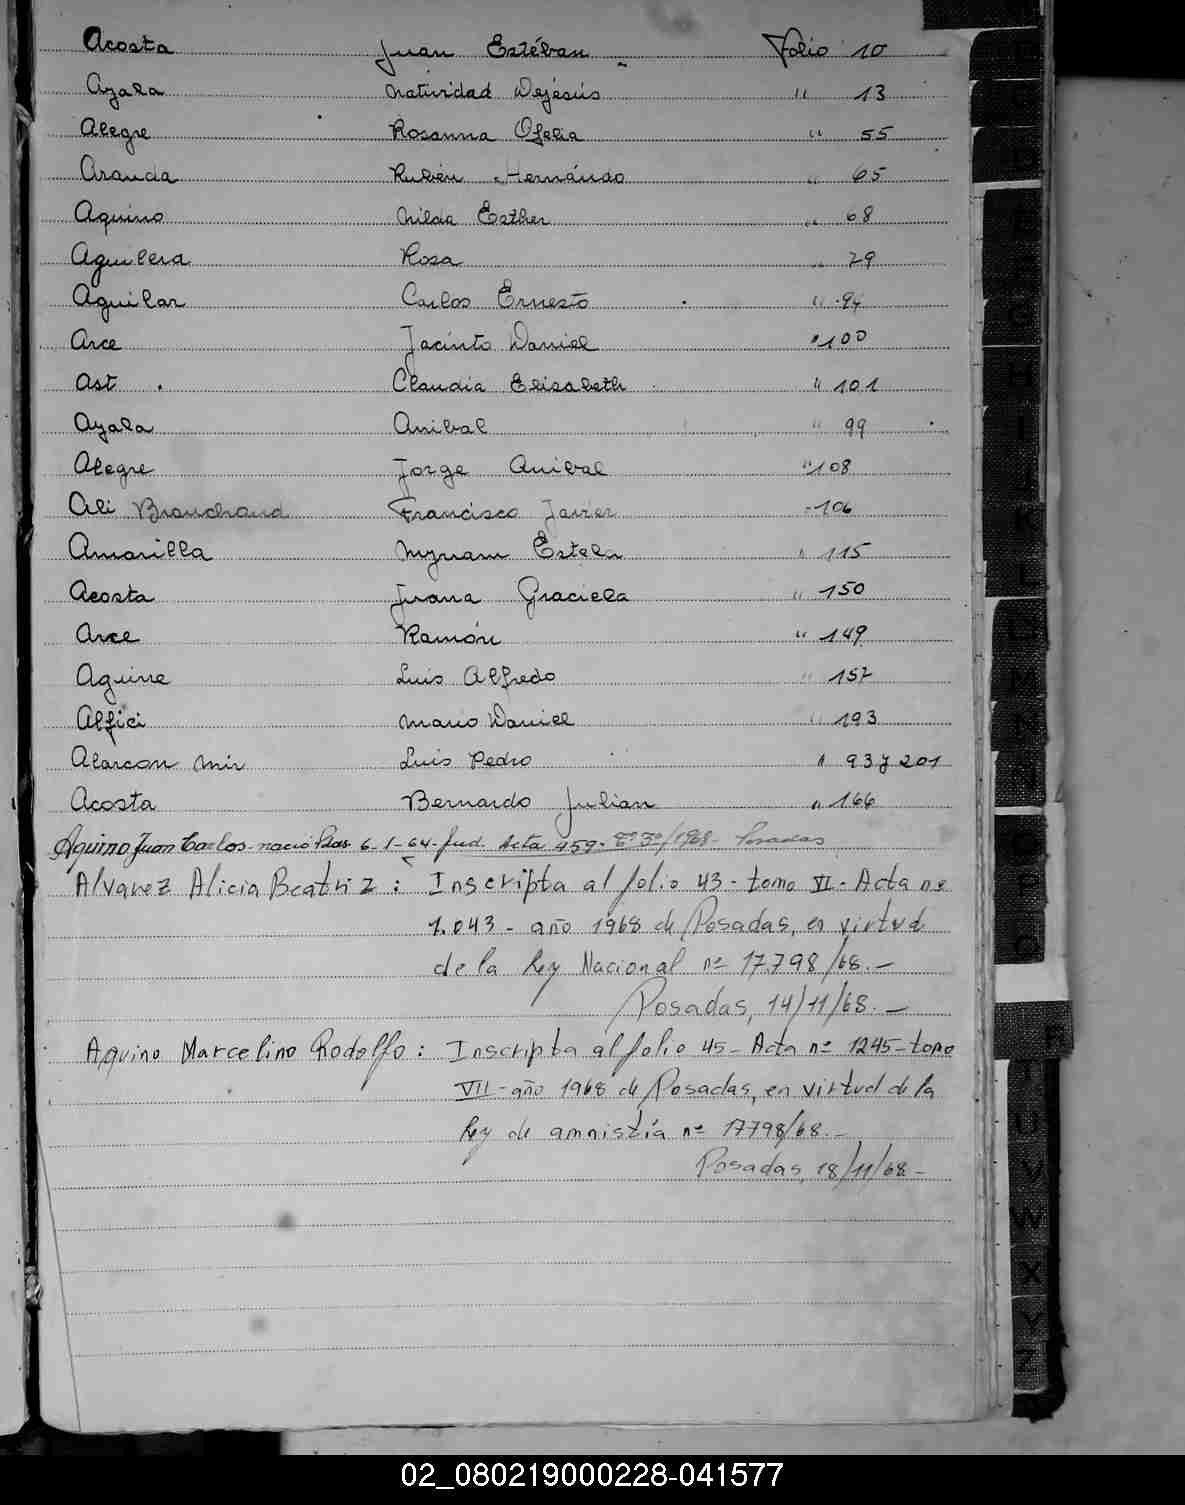 Acosta Juan Estéban Folio 10
Ayala Natividad Dejesús " 13
Alegre Rosanna Ofelia " 55
Aranda Rubén Hernándo " 65
Aquino Nilda Esther " 68
Aguilera Rosa " 79
Aguilar Carlos Ernesto " 94
Arce Jacinto Daniel " 100
Ast Claudia Elisabeth " 101
Ayala Anibal " 99
Alegre Jorge Anibal " 108
Ali Branchand Francisco Javier " 106
Amarilla Myrian Estela " 115
Acosta Juana Graciela " 150
Arce Ramón " 149
Aguirre Luis Alfredo " 157
Alfici Mario Daniel " 193
Alarcon Mir Luis Pedro " 93 y 201
Acosta Bernardo Julian " 166
Aquino Juan Carlos nació Pdas 6-1-64 Acta 459 1968 Posadas
Alvarez Alicia Beatriz : Inscripta al folio 43 - tomo VI - Acta nº
1.043 - año 1968 de Posadas, en virtud
de la Ley Nacional nº 17.798/68.-
Posadas, 14/11/68.-
Aquino Marcelino Rodolfo : Inscripta al folio 45 - Acta nº 1245 - tomo
VII - año 1968 de Posadas, en virtud de la
Ley de amnistía nº 17798/68.-
Posadas, 18/11/68 -
H
I
K
L
M
N
P
Q
R
U
V
W
X
Y
Z
02_080219000228-041577